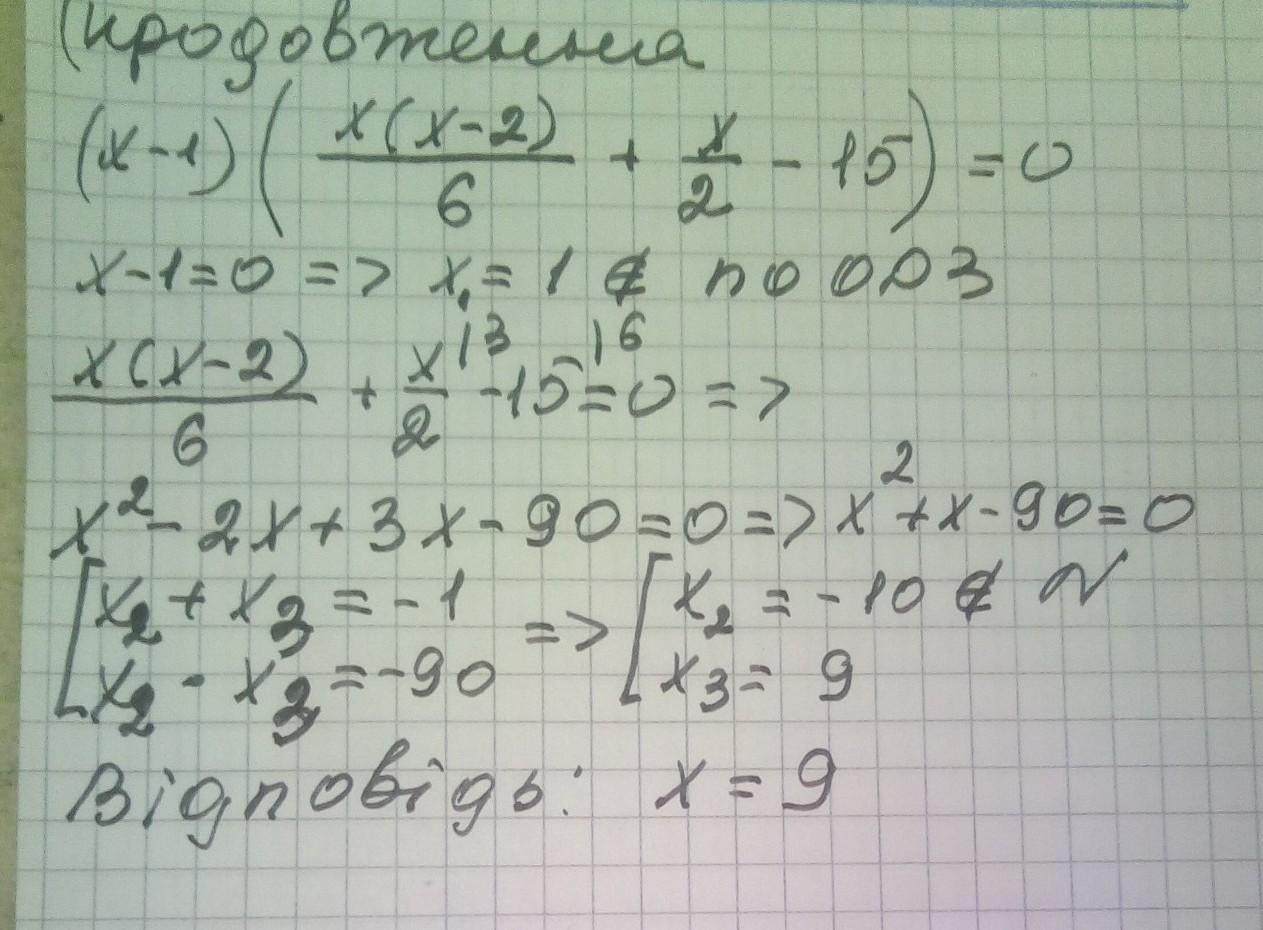 (продовження
(x-1)(x(x-2)/6 + x/2 - 15) = 0
x-1=0 => x₁= 1 ∉ по ОДЗ
x(x-2)/6 + x/2 |3 -15 |6 =0 =>
x²- 2x+3x-90=0=>x²+x-90=0
[x₂+x₃=-1 => [x₂=-10 ∉ N
x₂·x₃=-90 x₃= 9
Відповідь: x = 9